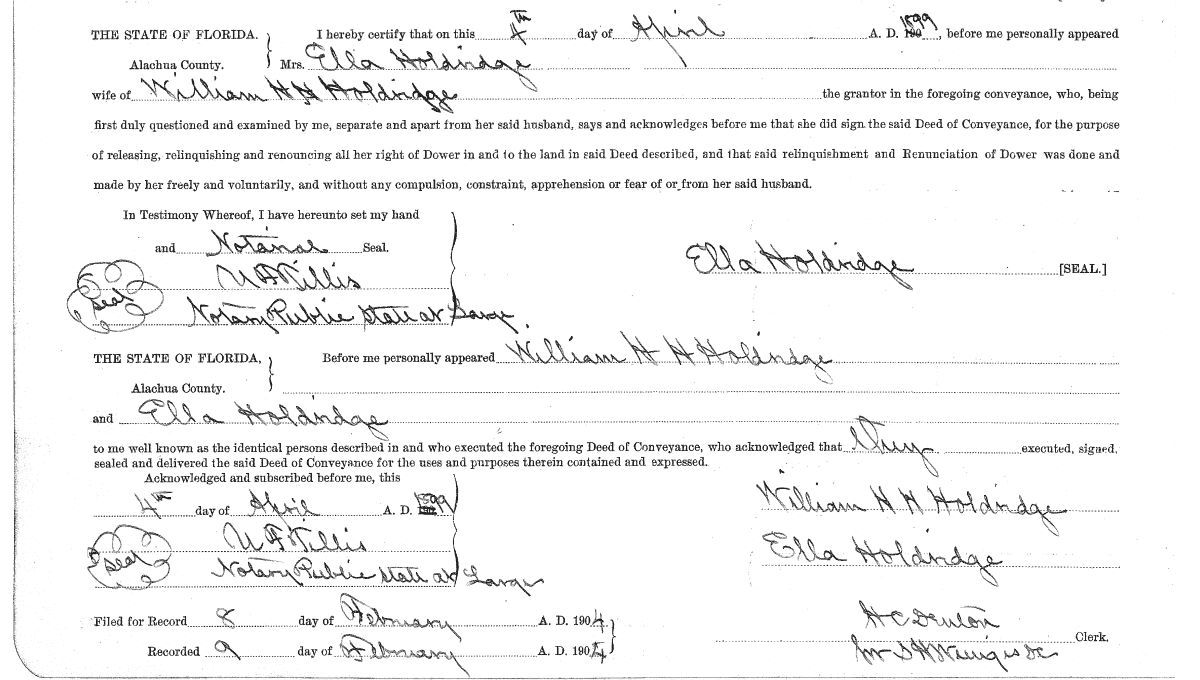 THE STATE OF FLORIDA. } I hereby certify that on this 4th day of April A. D. 1899, before me personally appeared
Alachua County. Mrs. Ella Holdridge
wife of William H H Holdridge the grantor in the foregoing conveyance, who, being
first duly questioned and examined by me, separate and apart from her said husband, says and acknowledges before me that she did sign the said Deed of Conveyance, for the purpose
of releasing, relinquishing and renouncing all her right of Dower in and to the land in said Deed described, and that said relinquishment and Renunciation of Dower was done and
made by her freely and voluntarily, and without any compulsion, constraint, apprehension or fear of or from her said husband.
In Testimony Whereof, I have hereunto set my hand
and Notarial Seal.
Ella Holdridge [SEAL.]
Seal Tillis
Notary Public State at Large
THE STATE OF FLORIDA, } Before me personally appeared William H H Holdridge
Alachua County.
and Ella Holdridge
to me well known as the identical persons described in and who executed the foregoing Deed of Conveyance, who acknowledged that they executed, signed,
sealed and delivered the said Deed of Conveyance for the uses and purposes therein contained and expressed.
Acknowledged and subscribed before me, this
4th day of April A. D. 1899
William H H Holdridge
Seal Tillis
Ella Holdridge
Notary Public State at Large
Filed for Record 8 day of February A. D. 1904.
H C Denton
Recorded 9 day of February A. D. 1904
Clerk.